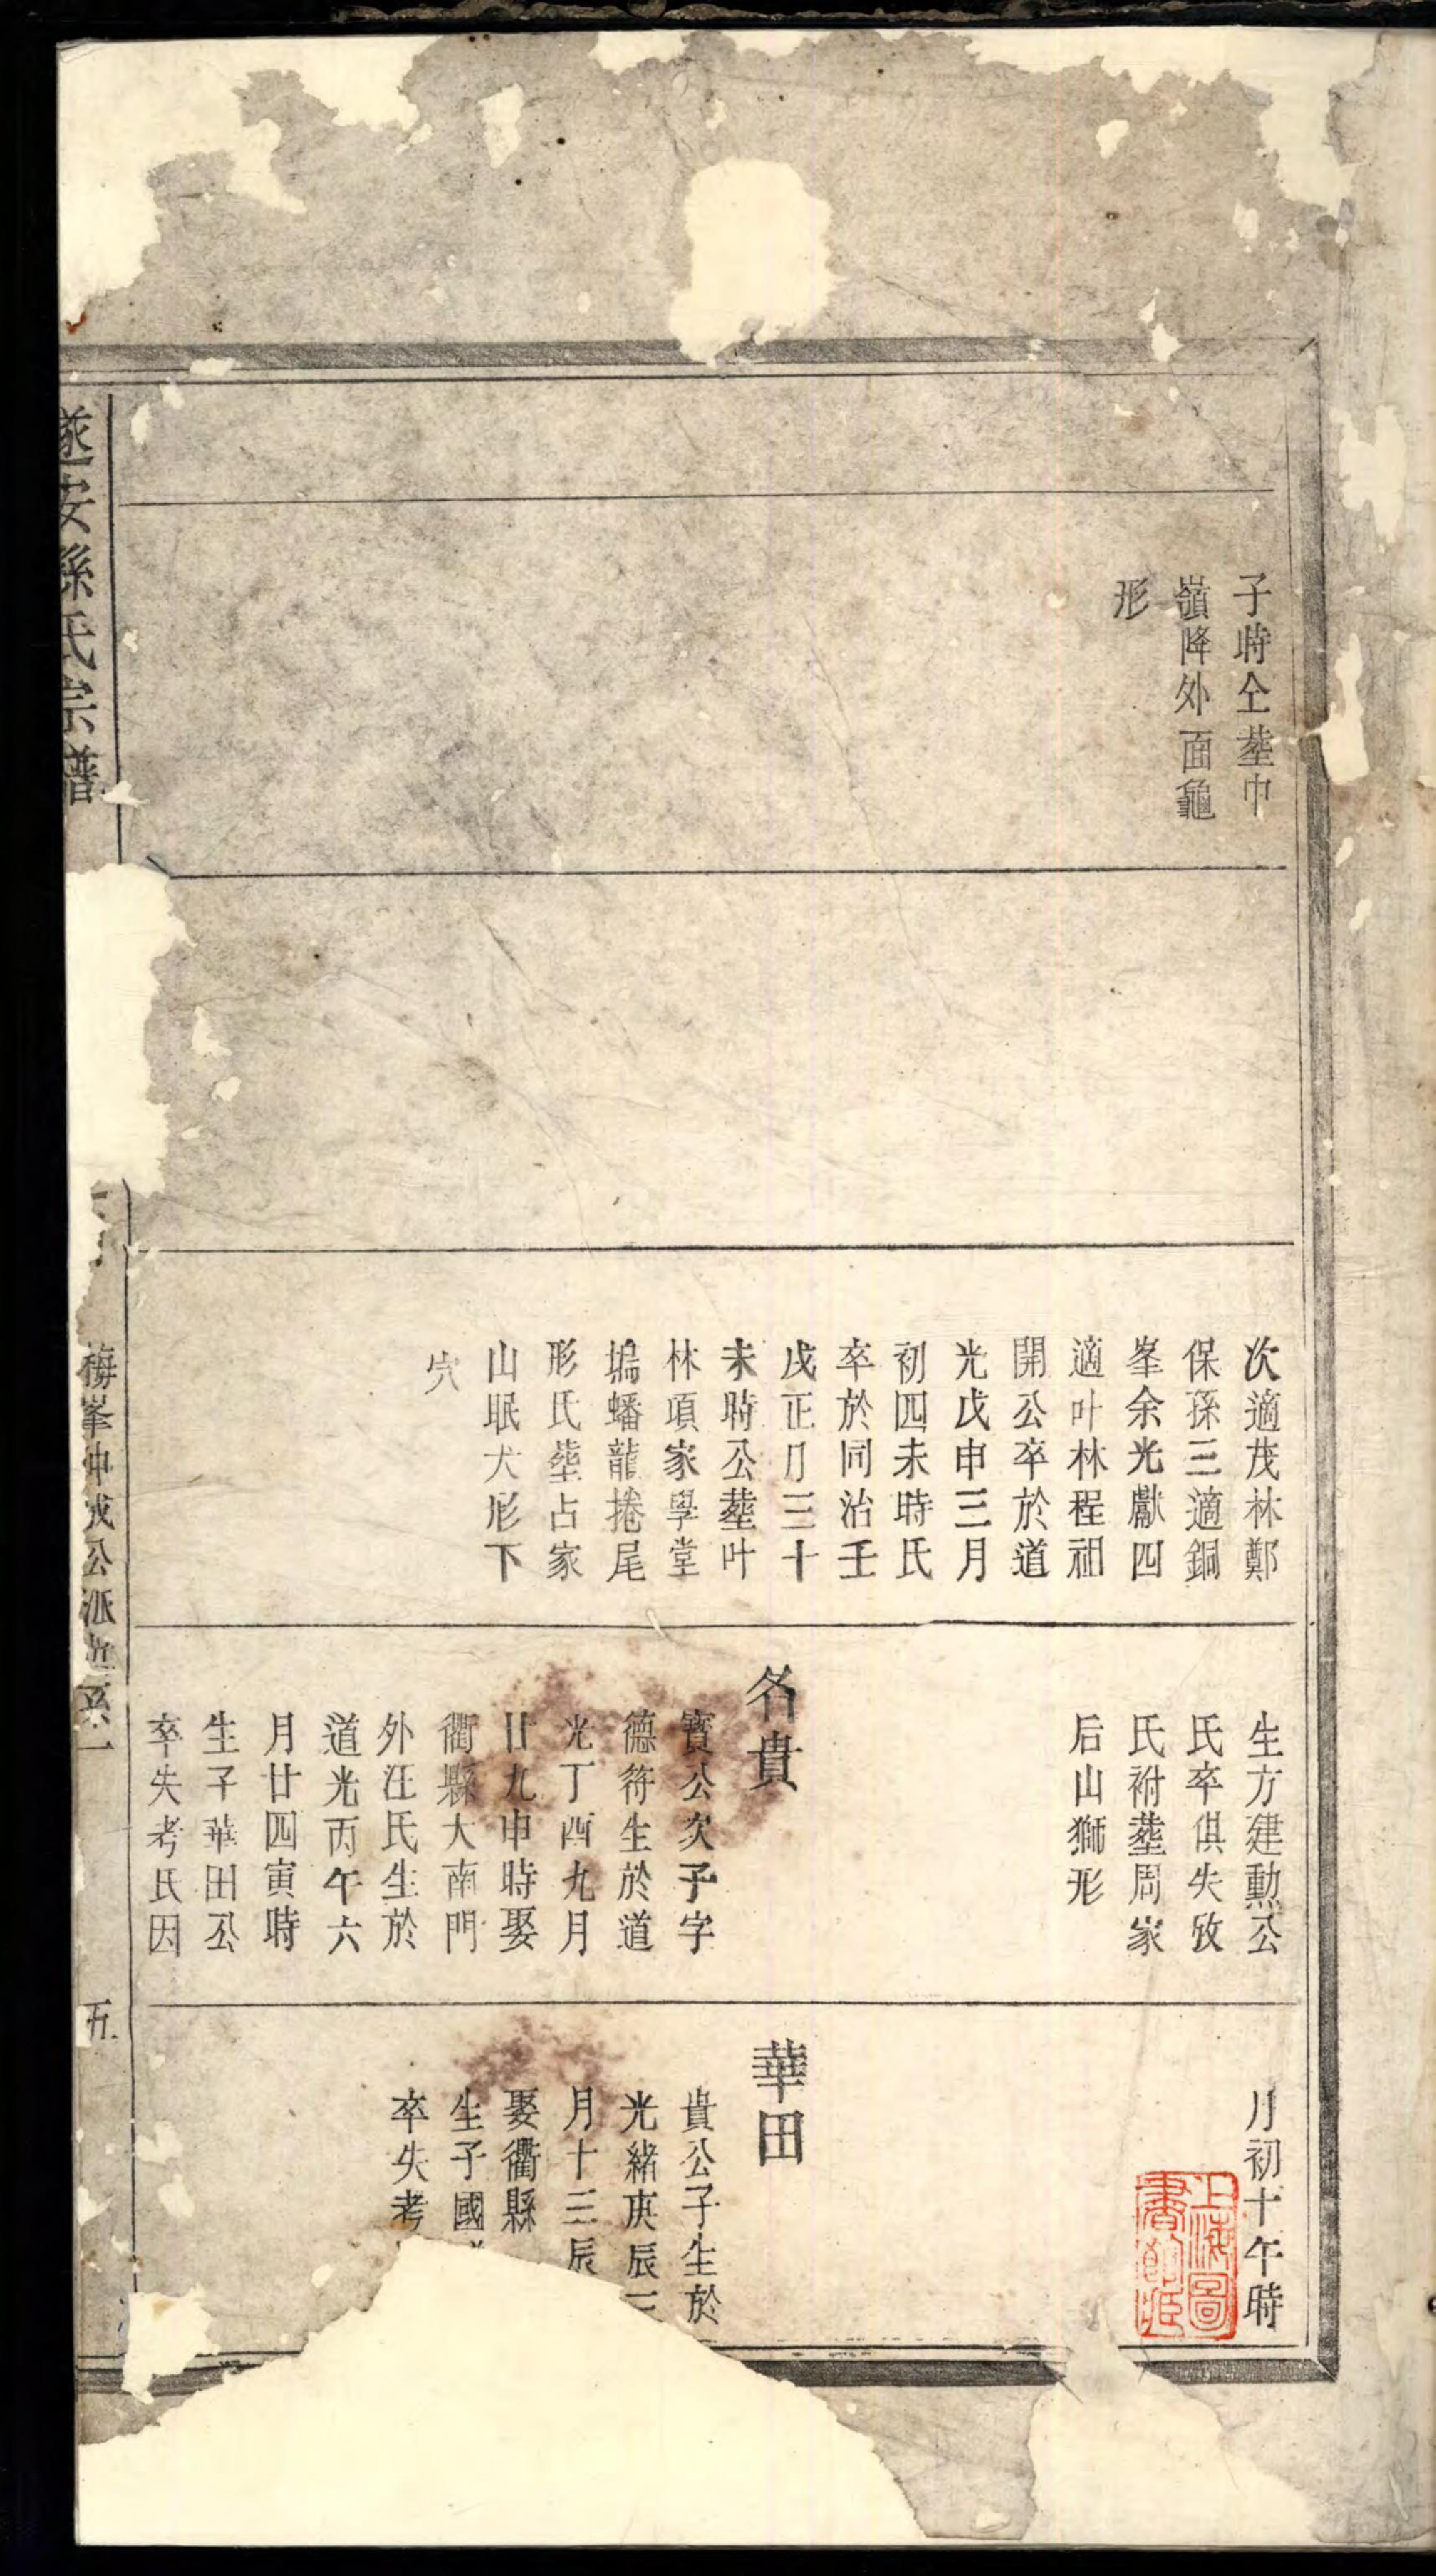 子時仝塟巾
嶺降外面龜
形
次適茂林鄭
保孫三適銅
峯余光獻四
適叶林程祖
開公卒於道
光戊申三月
初四未時氏
卒於同治壬
戌正月三十
未時公塟叶
林項家學堂
塢蟠龍捲尾
形氏塟占家
山眠犬形下
穴
生方建勲公
氏卒俱失攷
氏祔塟周家
后山獅形
名貴
寳公次子字
德符生於道
光丁酉九月
廿九申時娶
衢縣大南門
外汪氏生於
道光丙午六
月廿四寅時
生子華田公
卒失考氏因
月初十午時
華田
貴公子生於
光緒庚辰三
月十三辰
娶衢縣
生子國
卒失考
遂安孫氏宗譜
梅峯仲戎公派世系一
五
上海圖
書館藏